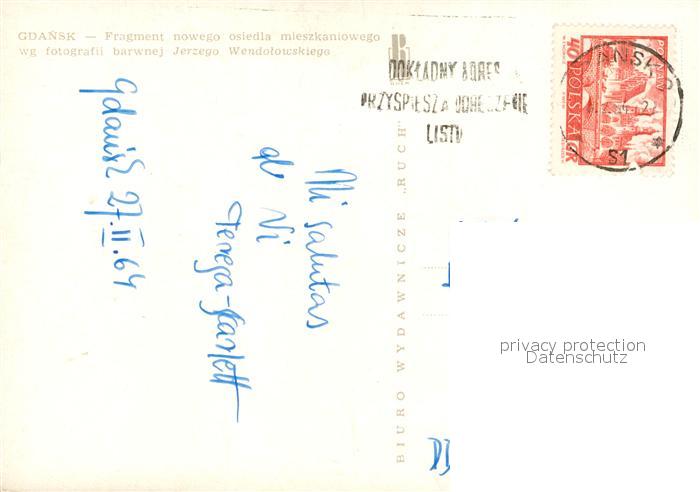 GDAŃSK — Fragment nowego osiedla mieszkaniowego
wg fotografii barwnej Jerzego Wendołowskiego
DOKŁADNY ADRES
PRZYSPIESZA DORĘCZENIE
LISTU
POLSKA
40 GR
BIURO WYDAWNICZE „RUCH”
Gdańsk 27.II.64
Mi salutas
al Vi
privacy protection
Datenschutz